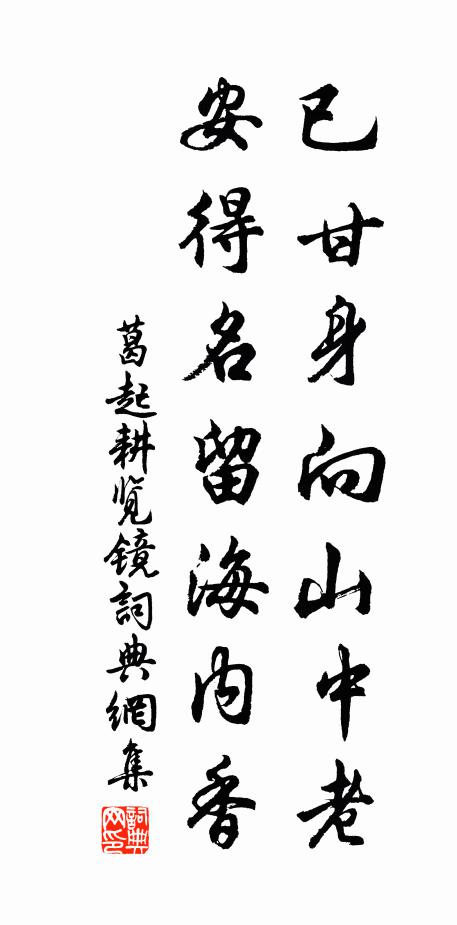 已甘身向山中老
安得名留海内香
葛起耕览镜詞典網集
詞典网印